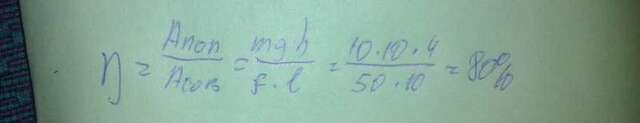 η = Апол/Асов = mgh/F·l = 10·10·4/50·10 = 80%